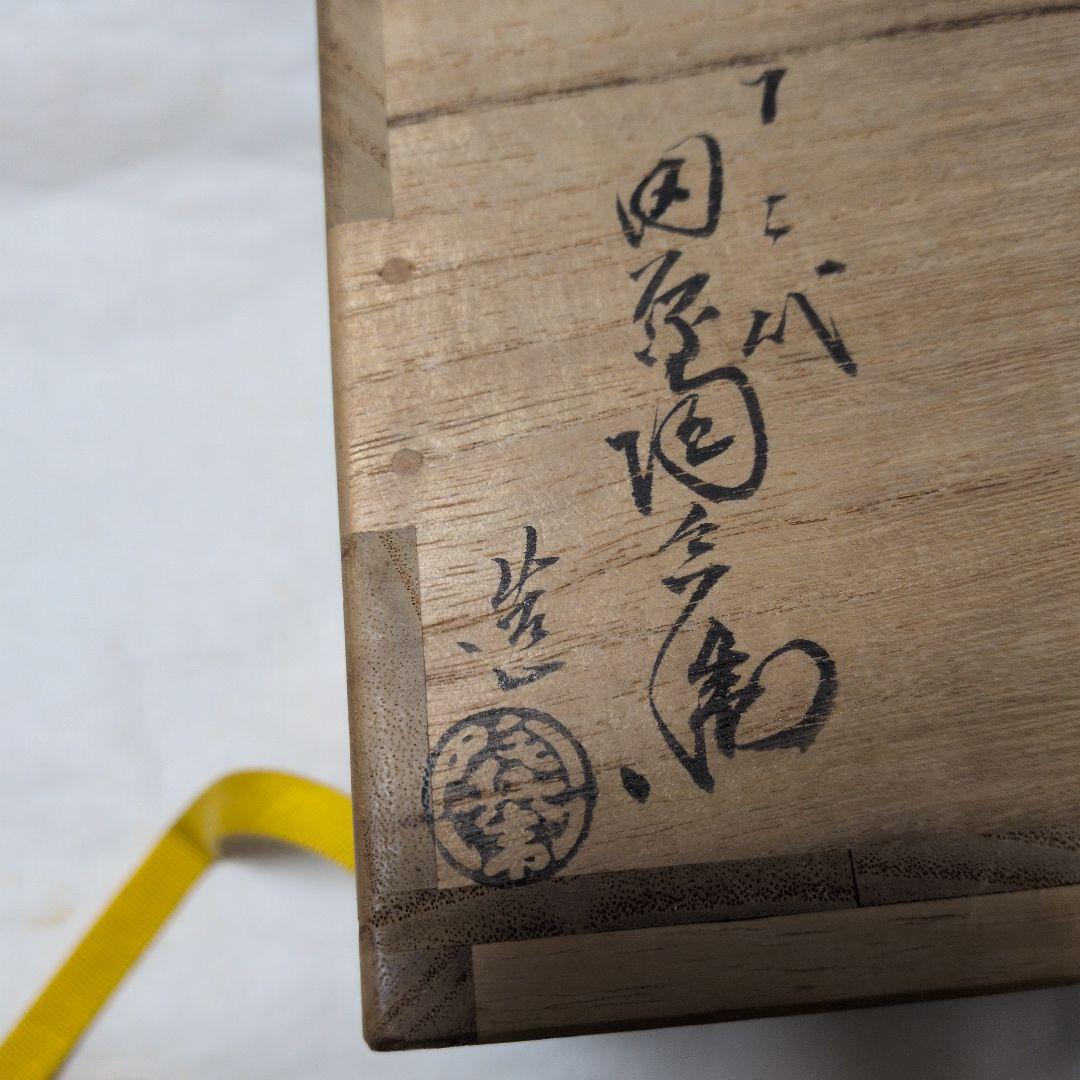 十二代
田原陶兵衛
造